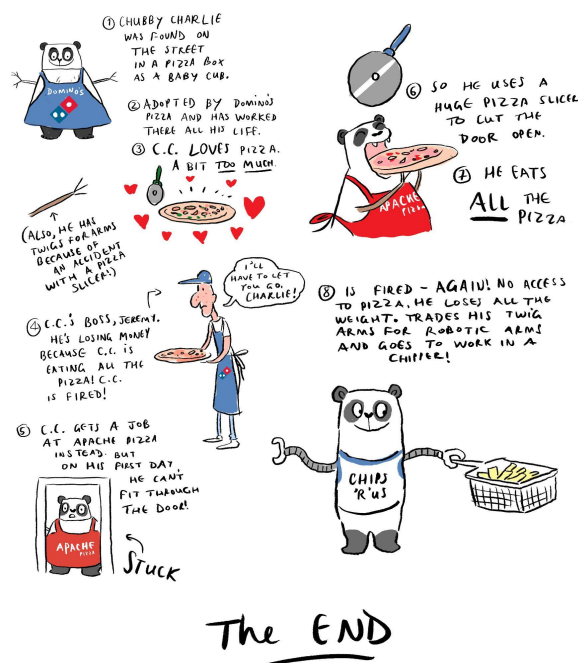 ① CHUBBY CHARLIE
WAS FOUND ON
THE STREET
IN A PIZZA BOX
AS A BABY CUB.
DOMINO'S
② ADOPTED BY DOMINO'S
PIZZA AND HAS WORKED
THERE ALL HIS LIFE.
③ C.C. LOVES PIZZA.
A BIT TOO MUCH.
(ALSO, HE HAS
TWIGS FOR ARMS
BECAUSE OF
AN ACCIDENT
WITH A PIZZA
SLICER!)
I'LL
HAVE TO LET
YOU GO,
CHARLIE!
④ C.C.'S BOSS, JEREMY.
HE'S LOSING MONEY
BECAUSE C.C. IS
EATING ALL THE
PIZZA! C.C.
IS FIRED!
⑤ C.C. GETS A JOB
AT APACHE PIZZA
INSTEAD. BUT
ON HIS FIRST DAY,
HE CAN'T
FIT THROUGH
THE DOOR!
APACHE
PIZZA
STUCK
⑥ SO HE USES A
HUGE PIZZA SLICER
TO CUT THE
DOOR OPEN.
⑦ HE EATS
ALL THE
PIZZA
APACHE
PIZZA
⑧ IS FIRED - AGAIN! NO ACCESS
TO PIZZA, HE LOSES ALL THE
WEIGHT. TRADES HIS TWIG
ARMS FOR ROBOTIC ARMS
AND GOES TO WORK IN A
CHIPPER!
CHIPS
'R' US
The END